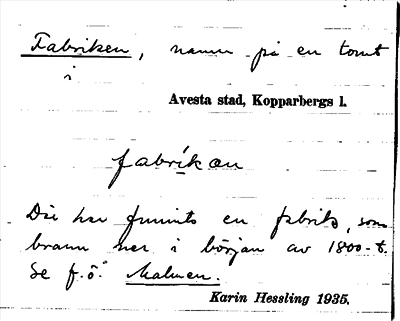 Fabriken, namn på en tomt
i
Avesta stad, Kopparbergs l.
fabríkan
Där har funnits en fabrik, som
brann ner i början av 1800-t.
Se f.ö. Malmen.
Karin Hessling 1935.